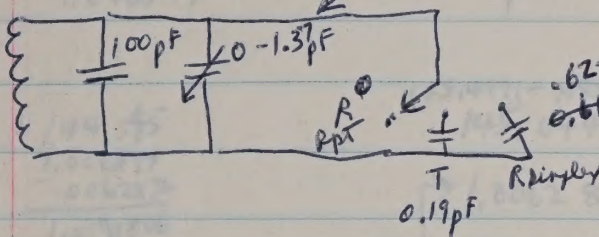 100pF
0-1.37pF
R
RPT
T
0.19pF
Rsimplex
.62